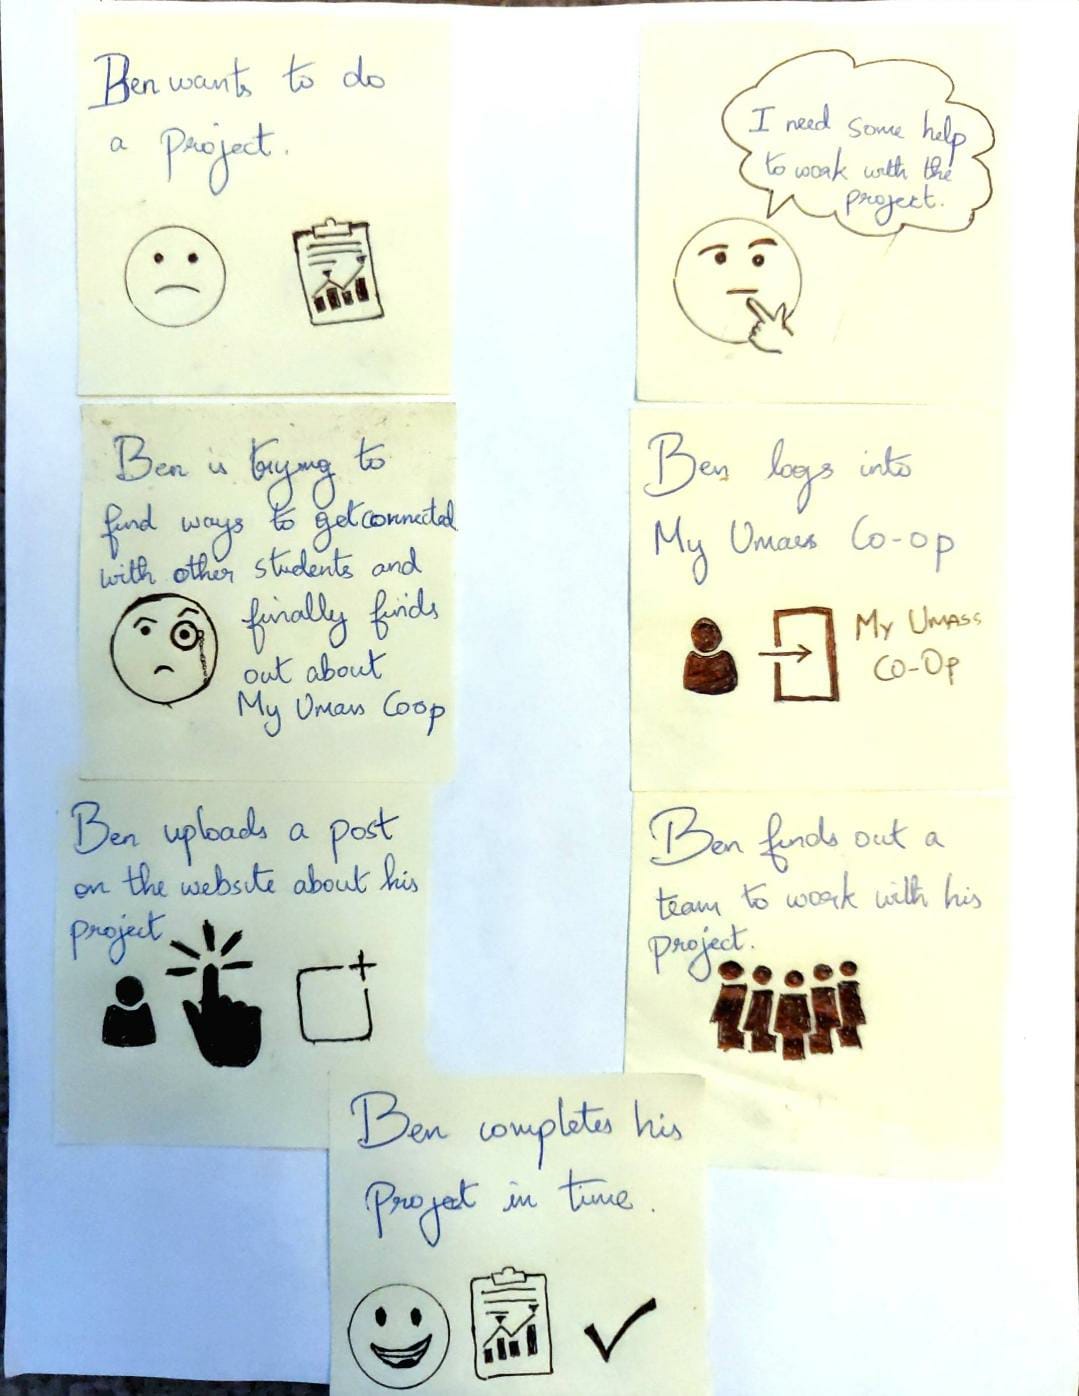 Ben wants to do
a project.
I need some help
to work with the
project.
Ben is trying to
find ways to get connected
with other students and
finally finds
out about
My Umass Coop
Ben logs into
My Umass Co-op
My UMASS
CO-Op
Ben uploads a post
on the website about his
project
Ben finds out a
team to work with his
project.
Ben completes his
Project in time.